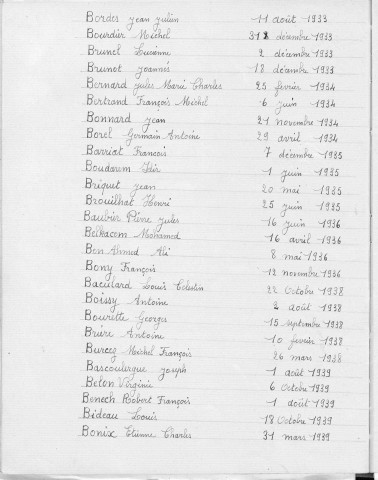 Bordes Jean Julien 11 août 1933
Bourdier Michel 31 décembre 1933
Brunel Lucienne 2 décembre 1933
Brunot Joannès 18 décembre 1933
Bernard Jules Marie Charles 25 février 1934
Bertrand François Michel 6 juin 1934
Bonnard Jean 21 novembre 1934
Borel Germain Antoine 29 avril 1934
Barriat Francois 7 décembre 1935
Boudarum 1 juin 1935
Briguet Jean 20 mai 1935
Brouilhat Henri 25 juin 1935
Baubier Pierre Jules 16 juin 1936
Belkacem Mohamed 16 avril 1936
Ben Ahmed Ali 8 mai 1936
Bony François 12 novembre 1936
Baculard Louis Celestin 22 Octobre 1938
Boissy Antoine 2 août 1938
Bourette Georges 15 septembre 1938
Brière Antoine 10 fevrier 1938
Burcez Michel François 26 mars 1938
Bascoulergue Joseph 1 août 1939
Beton Virginie 6 Octobre 1939
Benech Robert François 1 août 1939
Bideau Louis 18 Octobre 1939
Bonix Etienne Charles 31 mars 1939